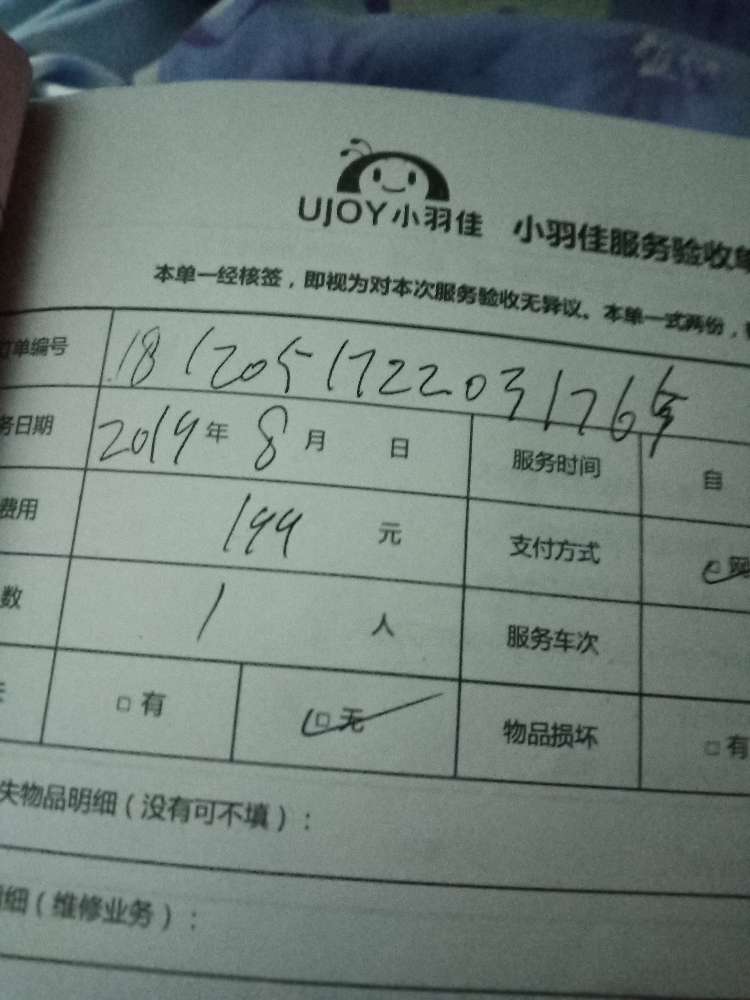 UJOY小羽佳 小羽佳服务验收单
本单一经核签，即视为对本次服务验收无异议。本单一式两份，
订单编号
务日期 2019年 8月 日 服务时间 自
费用 199 元 支付方式 网
数 1 人 服务车次
□有 □无 物品损坏 □有
失物品明细（没有可不填）：
明细（维修业务）：